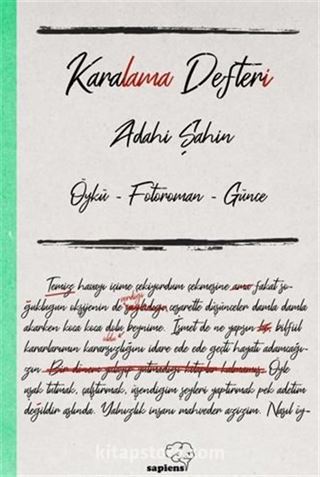 Karalama Defteri
Adahi Şahin
Öykü - Fotoroman - Günce
Temiz havayı içime çekiyordum çekmesine ama fakat so-
verdiği
ğukluğun oksijenin de sağladığı cesaretle düşünceler damla damla
akarken koca koca dolu beynime. İsmet de ne yapsın bu, bilfiil
oldu
kararlarımın kararsızlığını idare ede ede geçti hayatı adamcağı-
zın. Bir dönem yalayıp yutmadığı kitaplar kalmamış. Öyle
uşak tutmak, çalıştırmak, üşendiğim şeyleri yaptırmak pek adetim
değildir aslında. Yalnızlık insanı mahveder azizim. Nasıl iy-
kitapstore.com
sapiens